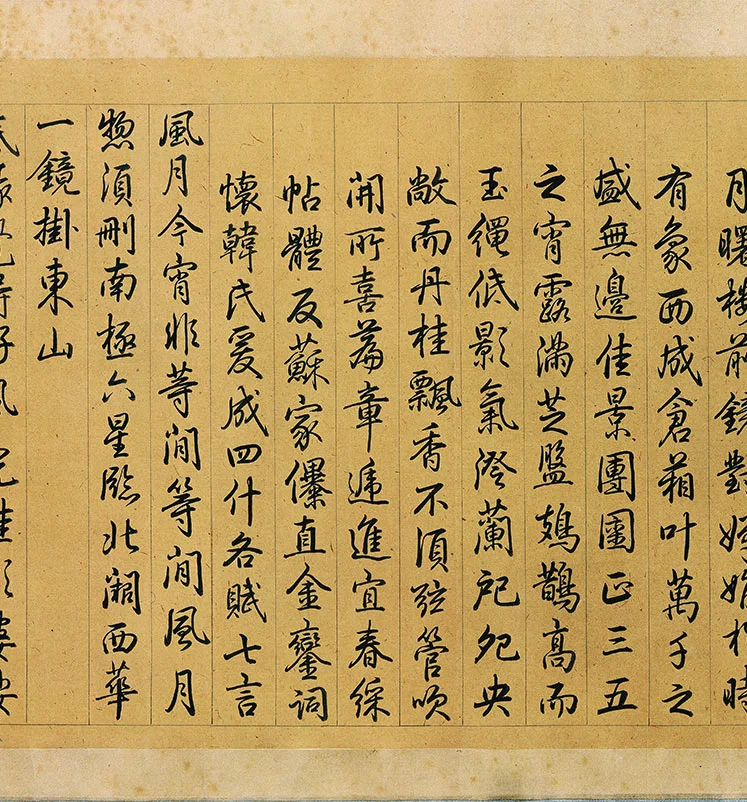 月曙樓前鏡對
有象西成倉箱叶萬千之
盛無邊佳景團圓正三五
之宵露滿芝盤鳷鵲高而
玉繩低影氣澄蘭戺夗央
敞而丹桂飄香不須弦管吹
開所喜篇章遞進宜春綵
帖體反蘇家儤直金鑾詞
懷韓氏爰成四什各賦七言
風月今宵非等閒等閒風月
惣須刪南極六星臨北闕西華
一鏡掛東山